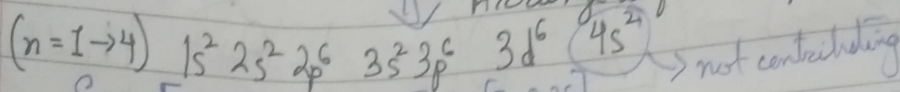 (n = 1 → 4) 1s² 2s² 2p⁶ 3s² 3p⁶ 3d⁶ 4s² → not contributing